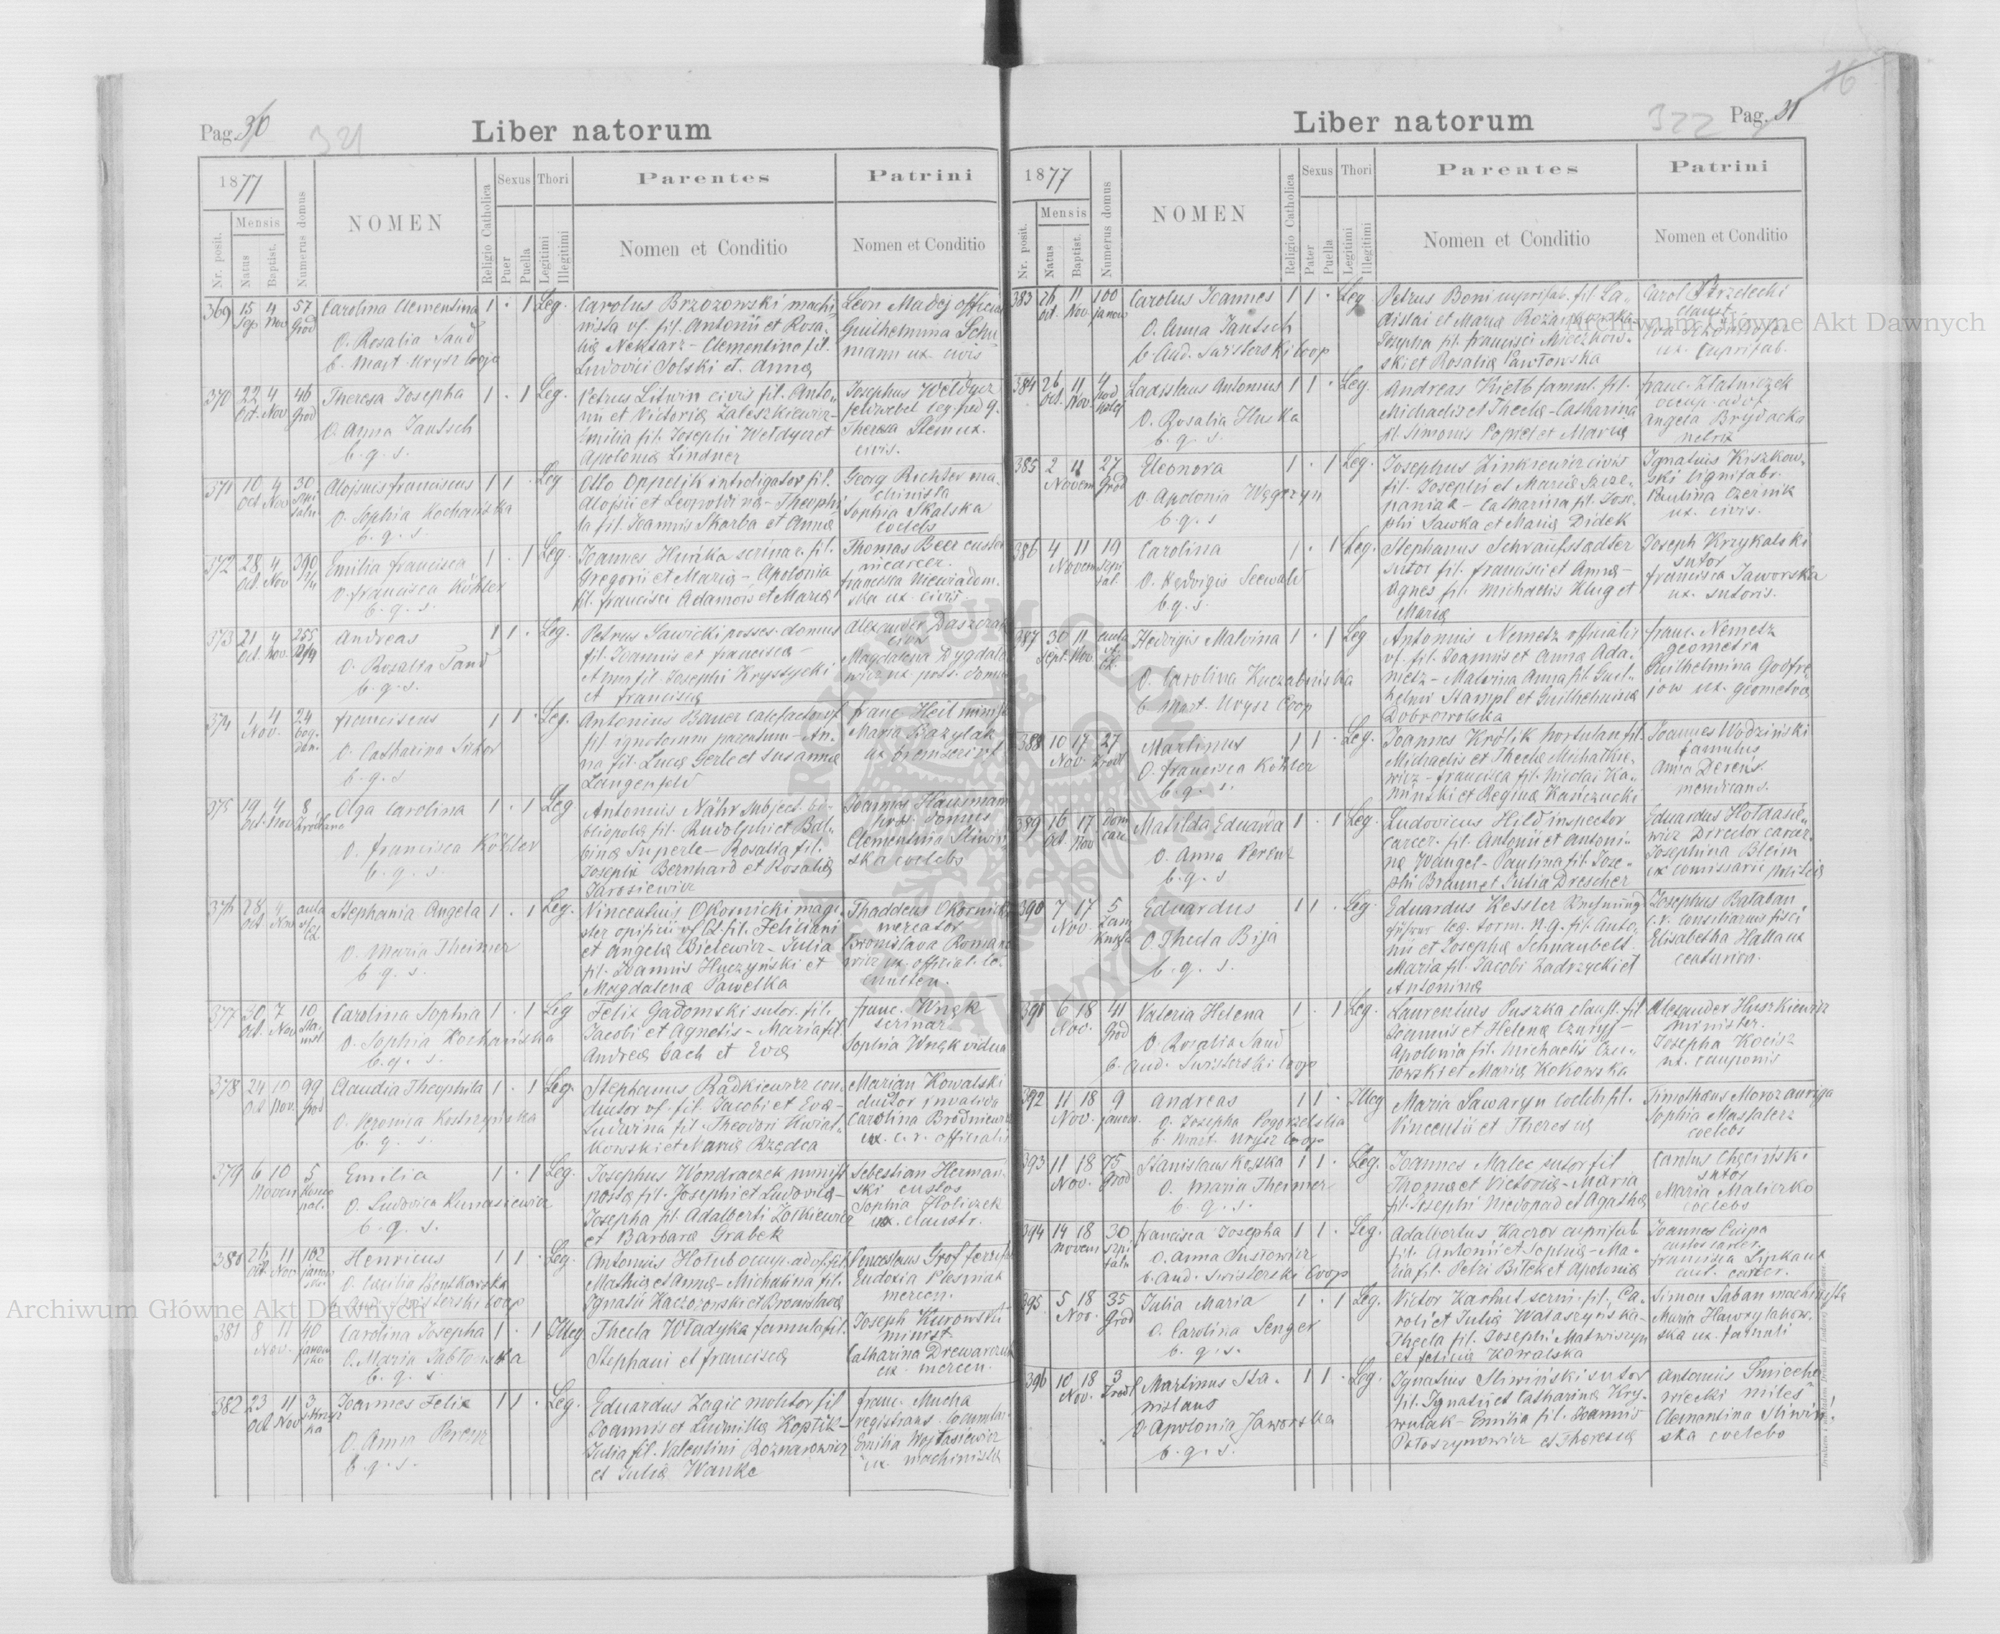 Pag. 30
321
Liber natorum
1877
Mensis
Nr. posit.
Natus
Baptist.
Numerus domus
NOMEN
Religio Catholica
Sexus
Puer
Puella
Thori
Legitimi
Illegitimi
Parentes
Nomen et Conditio
Patrini
Nomen et Conditio
369 15 Sep 4 Nov 57 Grod Carolina Clementina 1 . 1 Leg.
O. Rosalia Sand
b. Mart. Urysz Coop
Carolus Brzozowski machi-
nista vf. fil. Antonii et Rosa-
lia Nektarz - Clementina fil.
Ludovici Solski et Anna
Leon Madej official
Guilhelmina Schu-
mann ux. civis
370 22 Oct. 4 Nov 46 Grod Theresa Josepha 1 . 1 Leg.
O. Anna Jantsch
b. q. s.
Petrus Litwin civis fil. Anto-
nii et Victoria Zaleszkiewicz-
Emilia fil. Josephi Wełdycz et
Apolonia Lindner
Josephus Wełdycz
Theresa Stein ux.
civis.
371 10 Oct 4 Nov 30 Aloysius Franciscus 1 1 . Leg
O. Sophia Kochańska
b. q. s.
Otto Oppolik introligator fil.
Aloysii et Leopoldina - Theophi-
la fil. Joannis Skarba et Anna
Georg Richter ma-
chinista
Sophia Skalska
coelebs
372 28 Oct 4 Nov 390 Emilia Francisca 1 . 1 Leg.
O. Francisca Köhler
b. q. s.
Joannes Huńka scrinar. fil.
Gregorii et Maria - Apolonia
fil. Francisci Adamow et Maria
Thomas Beer custos
carcer.
Francisca Niewiadom-
ska ux. civis.
373 21 Oct. 4 Nov. 255 Andreas 1 1 . Leg.
O. Rosalia Sand
b. q. s.
Petrus Sawicki posses. domus
fil. Joannis et Francisca -
Anna fil. Josephi Krystycki
et Francisca
Alexander Daszczak
civis
Magdalena Dygdalo-
wicz ux. poss. domus
374 1 Nov. 4 24 Franciscus 1 1 . Leg.
O. Catharina Sikor
b. q. s
Antonius Bauer calefactor vf.
fil. ignotorum parentum - An-
na fil. Luca Gerle et Susanna
Langenfeld
Franc. Heil
375 19 Oct. 4 Nov 8 Olga Carolina 1 . 1 Leg
O. Francisca Köhler
b. q. s.
Antonius Nähr subject. bi-
bliopola fil. Rudolphi et Bal-
bina Superle - Rosalia fil.
Josephi Bernhard et Rosalia
Jarosiewicz
Joannes Hausmann
poss. domus
Clementina Sliwiń-
ska coelebs
376 28 Oct 4 Nov Stephania Angela 1 . 1 Leg.
O. Maria Theimer
b. q. s.
Vincentius Okornicki magi-
ster opificii vf. Cl. fil. Feliciani
et Angela Bielewicz - Julia
fil. Joannis Huczyński et
Magdalena Pawełka
Thaddeus Okornicki
mercator
Bronislava Romano-
wicz ux. official.
377 30 Oct. 7 Nov 10 Carolina Sophia 1 . 1 Leg
O. Sophia Kochańska
b. q. s.
Felix Gadomski sutor fil.
Jacobi et Agnetis - Maria fil.
Andrea Cach et Eva
Franc. Wnęk
scrinar.
Sophia Wnęk vidua
378 24 Oct 10 Nov. 99 Grod Claudia Theophila 1 . 1 Leg.
O. Veronica Kostrzyńska
b. q. s.
Stephanus Radkiewicz con-
ductor vf. fil. Jacobi et Eva -
Ludwina fil. Theodori Kwiat-
kowski et Maria Rzędca
Marian Kowalski
doctor privatus
Carolina Brodniewicz
ux. c. r. officialis
379 6 Novem 10 5 Emilia 1 . 1 Leg.
O. Ludovica Kunasiewicz
b. q. s.
Josephus Wondraczek minist.
posta fil. Josephi et Ludovica -
Josepha fil. Adalberti Zołkiewicz
et Barbara Grabek
Sebestian Herman-
ski custos
Sophia Holiczek
ux. claustr.
380 26 Oct. 11 Nov 102 Henricus 1 1 . Leg
b. Aud. Swisterski Coop
Antonius Hołub occup. ad vf. fil.
Mathia et Anna - Michalina fil.
Ignatii Kaczorowski et Bronislava
Venceslaus Grof ferrifab.
Eudoxia Plesniak
mercen.
381 8 Nov. 11 40 Carolina Josepha 1 . 1 Illeg
O. Maria Jabłonska
b. q. s.
Thecla Władyka famula fil.
Stephani et Francisca
Joseph Kurowski
minist.
Catharina Drewarczuk
ux. mercen.
382 23 Oct 11 Nov 3 Joannes Felix 1 1 . Leg.
O. Anna Perenz
b. q. s.
Eduardus Zagic molitor fil
Joannis et Ludmilla Koptik -
Julia fil. Valentini Roznarowicz
et Julia Wanke
Franc. Mucha
registrans. locumten.
Emilia Wojtasiewicz
ux. machinista
76
322 Pag. 31
Liber natorum
1877
Mensis
Nr. posit.
Natus
Baptist.
Numerus domus
NOMEN
Religio Catholica
Sexus
Pater
Puella
Thori
Legitimi
Illegitimi
Parentes
Nomen et Conditio
Patrini
Nomen et Conditio
383 26 Oct. 11 Nov. 100 Janow Carolus Joannes 1 1 . Leg
O. Anna Jantsch
b. Aud. Swisterski Coop
Petrus Boni cuprifab. fil. La-
dislai et Maria Rozankowska
Josepha fil. Francisci Mieczkow-
ski et Rosalia Pawłowska
Carol Strzelecki
claust.
ux. cuprifab.
384 26 Oct. 11 Nov. 4 Ladislaus Antonius 1 1 . Leg.
O. Rosalia Huska
b. q. s.
Andreas Kiełb famul. fil.
Michaelis et Thecla - Catharina
fil. Simonis Popiel et Maria
Franc. Złatniczek
occup. ad vf
Angela Brydacka
385 2 Novem 11 27 Grod Eleonora 1 . 1 Leg.
O. Apolonia Węgrzyn
b. q. s
Josephus Zinkiewicz civis
fil. Josephi et Maria Szcze-
paniak - Catharina fil. Jose-
phi Sawka et Maria Didek
Ignatius Kiszkow-
ski lignifabr.
Paulina Czernik
ux. civis.
386 4 Novem 11 19 Carolina 1 . 1 Leg.
O. Hedvigis Seewald
b. q. s.
Stephanus Schraufstadter
sutor fil. Francisci et Anna -
Agnes fil. Michaelis Klug et
Maria
Joseph Krzykalski
sutor
Francisca Jaworska
ux. sutoris.
387 30 Sept. 11 Nov. Hedvigis Malvina 1 . 1 Leg
O. Carolina Kuczabinska
b. Mart. Urysz Coop
Antonius Nemetz officialis
vf. fil. Joannis et Anna Ada-
metz - Malvina Anna fil. Guil-
helmi Stampl et Guilhelmina
Dobrowolska
Franc. Nemetz
geometra
Guilhelmina Godfre-
jow ux. geometra
388 10 Nov. 17 27 Martinus 1 1 . Leg.
O. Francisca Köhler
b. q. s.
Joannes Królik portulan. fil
Michaelis et Thecla Michałkie-
wicz - Francisca fil. Nicolai Ka-
minski et Regina Kańczucki
Joannes Wodziński
famulus
Anna Dereń
389 16 Oct. 17 Nov Matilda Eduarda 1 . 1 Leg.
O. Anna Perenz
b. q. s
Ludovicus Hild inspector
carcer. fil. Antonii et Antoni-
na Wangel - Paulina fil. Jose-
phi Braun et Julia Drescher
Eduardus Hołdasie-
wicz Director carcer.
Josephina Bleim
ux comissarii policia
390 7 Nov. 17 5 Eduardus 1 1 . Leg
O Thecla Bija
b. q. s.
Eduardus Kessler
fil. Anto-
nii et Josepha Schnaubelt -
Maria fil. Jacobi Zadrzycki et
Antonina
Josephus Bałaban
c. r. consiliarius fisci
Elisabetha Halla ux
centurion.
391 6 Nov. 18 41 Grod Valeria Helena 1 . 1 Leg.
O. Rosalia Sand
b. Aud. Swisterski Coop
Laurentius Puszka claust. fil
Joannis et Helena Czuryj -
Apolonia fil. Michaelis Czu-
lowski et Maria Kokowska
Alexander Huszkiewicz
minister.
Josepha Kocisz
ux. cauponis
392 11 Nov. 18 9 Janow. Andreas 1 1 . Illeg
O. Josepha Pogorzelska
b. Mart. Urysz Coop
Maria Sawaryn coeleb fil.
Vincentii et Theresia
Timotheus Moroz auriga
Sophia Masztalerz
coelebs
393 11 Nov. 18 75 Grod Stanislaus Kostka 1 1 . Leg.
O. Maria Theimer
b. q. s.
Joannes Malec sutor fil
Thoma et Victoria - Maria
fil. Josephi Niedopad et Agatha
Carolus Chęciński
sutor
Maria Malierko
coelebs
394 14 Novem 18 30 Francisca Josepha 1 1 . Leg.
O. Anna Susłowicz
b. Aud. Swisterski Coop
Adalbertus Kaczor cuprifab.
fil. Antonii et Sophia - Ma-
ria fil. Petri Bitek et Apolonia
Joannes Ciupa
custos carcer.
Francisca Lipka ux
cust. carcer.
395 5 Nov. 18 35 Grod Julia Maria 1 . 1 Leg.
O. Carolina Senger
b. q. s.
Victor Karhut scrni. fil. Ca-
roli et Julia Wataszyńska -
Thecla fil. Josephi Matwiszyn
et Felicia Kowalska
Simon Saban machinista
Maria Hawrylakow-
ska ux. famuli
396 10 Nov. 18 3 Grodl Martinus Sta-
nislaus 1 1 . Leg.
O Apolonia Jaworska
b. q. s.
Ignatius Sliwiński sutor
fil. Ignatii et Catharina Kry-
wulak - Emilia fil. Joannis
Potoszynowicz et Theresia
Antonius Smiecho-
wiecki miles
Clementina Sliwiń-
ska coelebs
Archiwum Główne Akt Dawnych
Archiwum Główne Akt Dawnych
ARCHIWUM GŁÓWNE AKT DAWNYCH